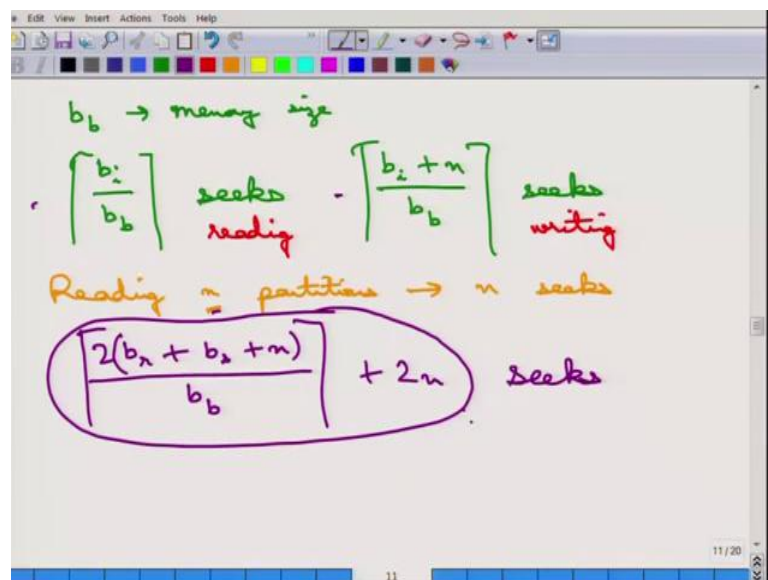 Edit View Insert Actions Tools Help
b_b → memory size
⌈b_i / b_b⌉ seeks ⌈(b_i + n) / b_b⌉ seeks
readig writing
Reading n partitions → n seeks
⌈2(b_r + b_s + n) / b_b⌉ + 2n seeks
11/20
11